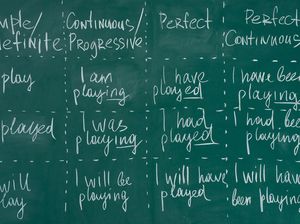 mple/
efinite
Continuous/
Progressive
Perfect
Perfect
Continuous
play
I am
playing
I have
played
I have been
playing
played
I was
playing
I had
played
I had been
playing
will
play
I will be
playing
I will have
played
I will have
been playing